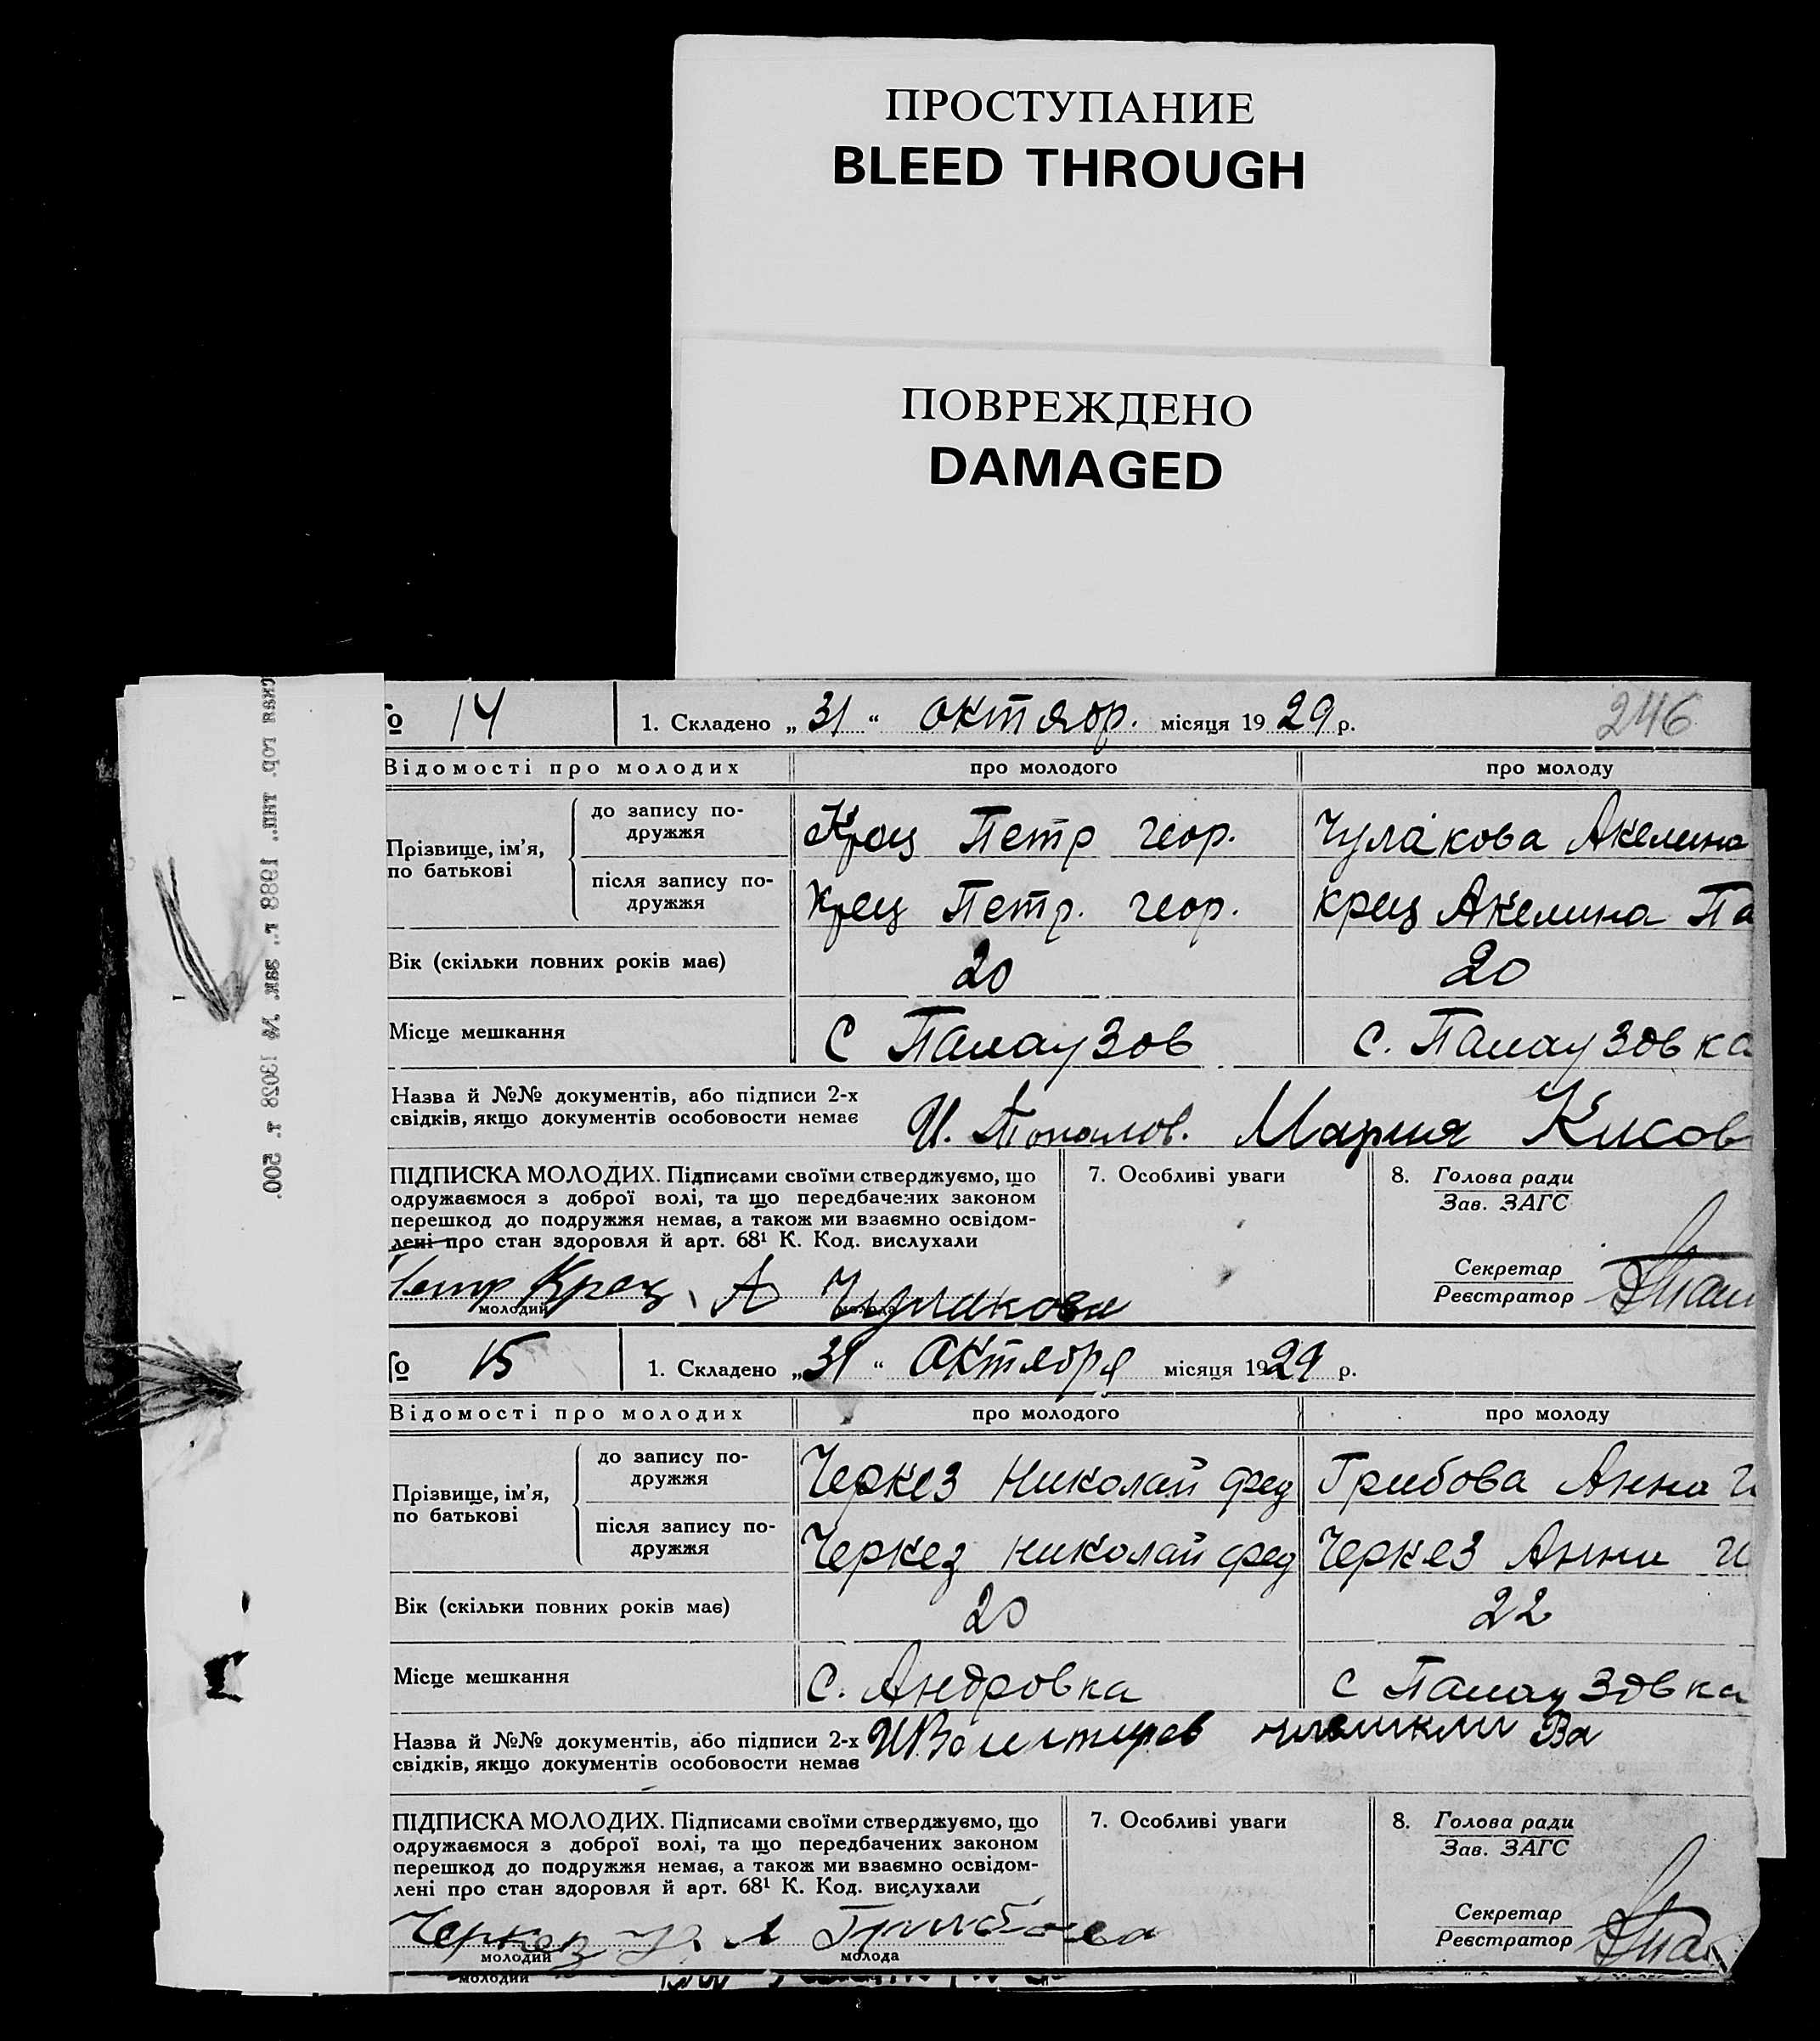 ПРОСТУПАНИЕ
BLEED THROUGH
ПОВРЕЖДЕНО
DAMAGED
№ 14 1. Складено „31“ октябр. місяця 1929 р. 246
Відомості про молодих про молодого про молоду
Прізвище, ім’я, по батькові
до запису подружжя Крец Петр геор. Чулакова Акелина
після запису подружжя Крец Петр. геор. Крец Акелина Па
Вік (скільки повних років має) 20 20
Місце мешкання С Палаузов с. Палаузовка
Назва й №№ документів, або підписи 2-х
свідків, якщо документів особовости немає И. Топалов. Мария Кисов
ПІДПИСКА МОЛОДИХ. Підписами своїми стверджуємо, що 7. Особливі уваги 8. Голова ради
одружаємося з доброї волі, та що передбачених законом Зав. ЗАГС
перешкод до подружжя немає, а також ми взаємно освідом-
лені про стан здоровля й арт. 68¹ К. Код. вислухали
Секретар
Реєстратор
Петр Крец А Чулакова
молодий молода
№ 15 1. Складено „31“ Октября місяця 1929 р.
Відомості про молодих про молодого про молоду
Прізвище, ім’я, по батькові
до запису подружжя Черкез Николай фед Грибова Анна И
після запису подружжя Черкез Николай фед Черкез Анни И
Вік (скільки повних років має) 20 22
Місце мешкання С. Андровка с Палаузовка
Назва й №№ документів, або підписи 2-х
свідків, якщо документів особовости немає
ПІДПИСКА МОЛОДИХ. Підписами своїми стверджуємо, що 7. Особливі уваги 8. Голова ради
одружаємося з доброї волі, та що передбачених законом Зав. ЗАГС
перешкод до подружжя немає, а також ми взаємно освідом-
лені про стан здоровля й арт. 68¹ К. Код. вислухали
Секретар
Реєстратор
Черкез Грибова
молодий молода
молодий